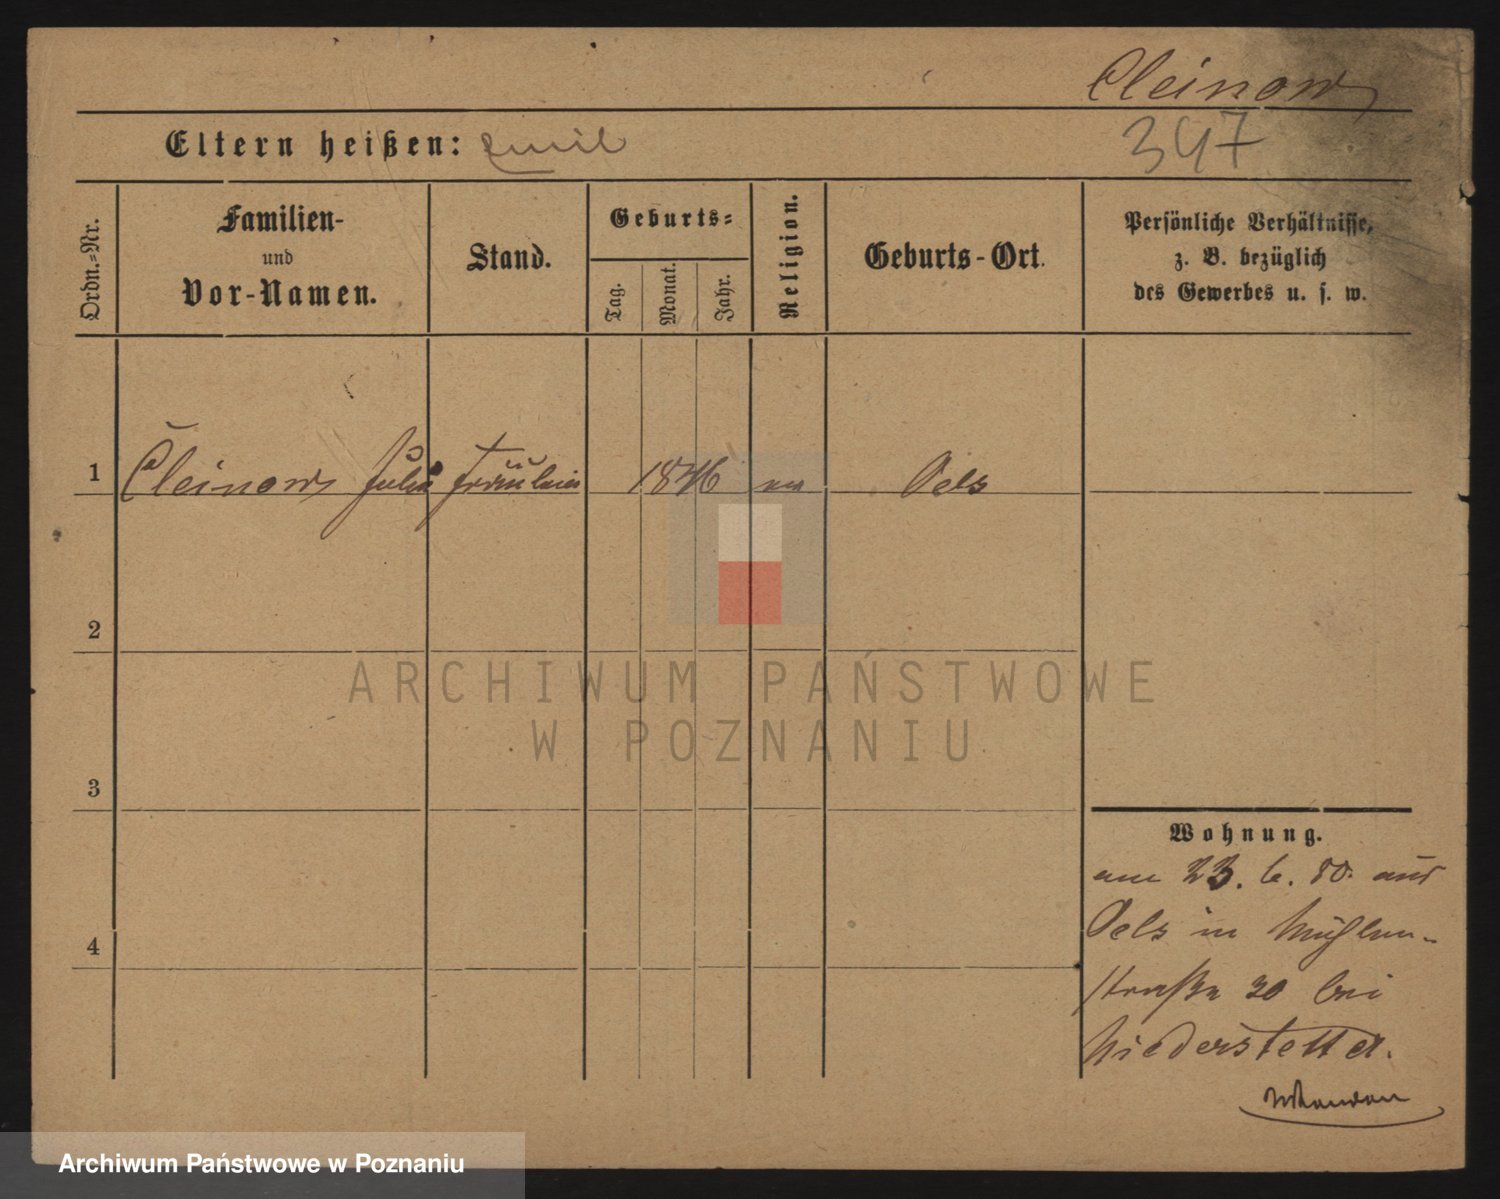 Cleinow
Eltern heißen: Emil
347
Ordn.-Nr.
Familien-
und
Vor-Namen.
Stand.
Geburts-
Tag.
Monat.
Jahr.
Religion.
Geburts-Ort.
Persönliche Verhältnisse,
z. B. bezüglich
des Gewerbes u. s. w.
1 Cleinow Julie Fräulein 1846 ev Oels
2
3
4
Wohnung.
am 23. 6. 80. aus
Oels in Mühlen-
straße 20 bei
Niederstetter.
ARCHIWUM PAŃSTWOWE
W POZNANIU
Archiwum Państwowe w Poznaniu